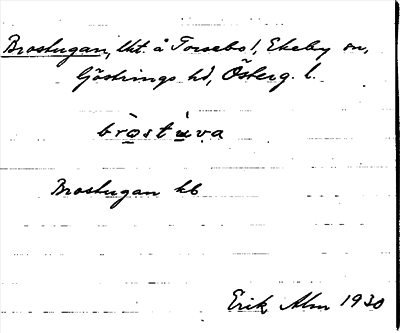 Brostugan, lht å Torsebo!, Ekeby sn,
Göstrings hd, Österg. l.
bròstúva
Brostugan kb
Erik Alm 1930